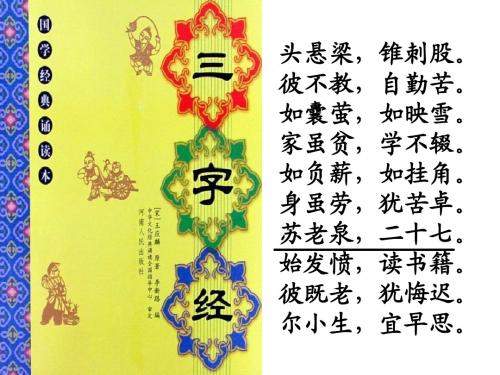 国学经典诵读本
三字经
[宋]王应麟 原著 李新路 编
中华文化经典诵读全国指导中心 审定
河南人民出版社
头悬梁，锥刺股。
彼不教，自勤苦。
如囊萤，如映雪。
家虽贫，学不辍。
如负薪，如挂角。
身虽劳，犹苦卓。
苏老泉，二十七。
始发愤，读书籍。
彼既老，犹悔迟。
尔小生，宜早思。